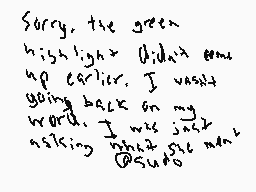 Sorry, the green
highlight didn't come
up earlier. I wasn't
going back on my
word. I was just
asking what she ment
@sudo